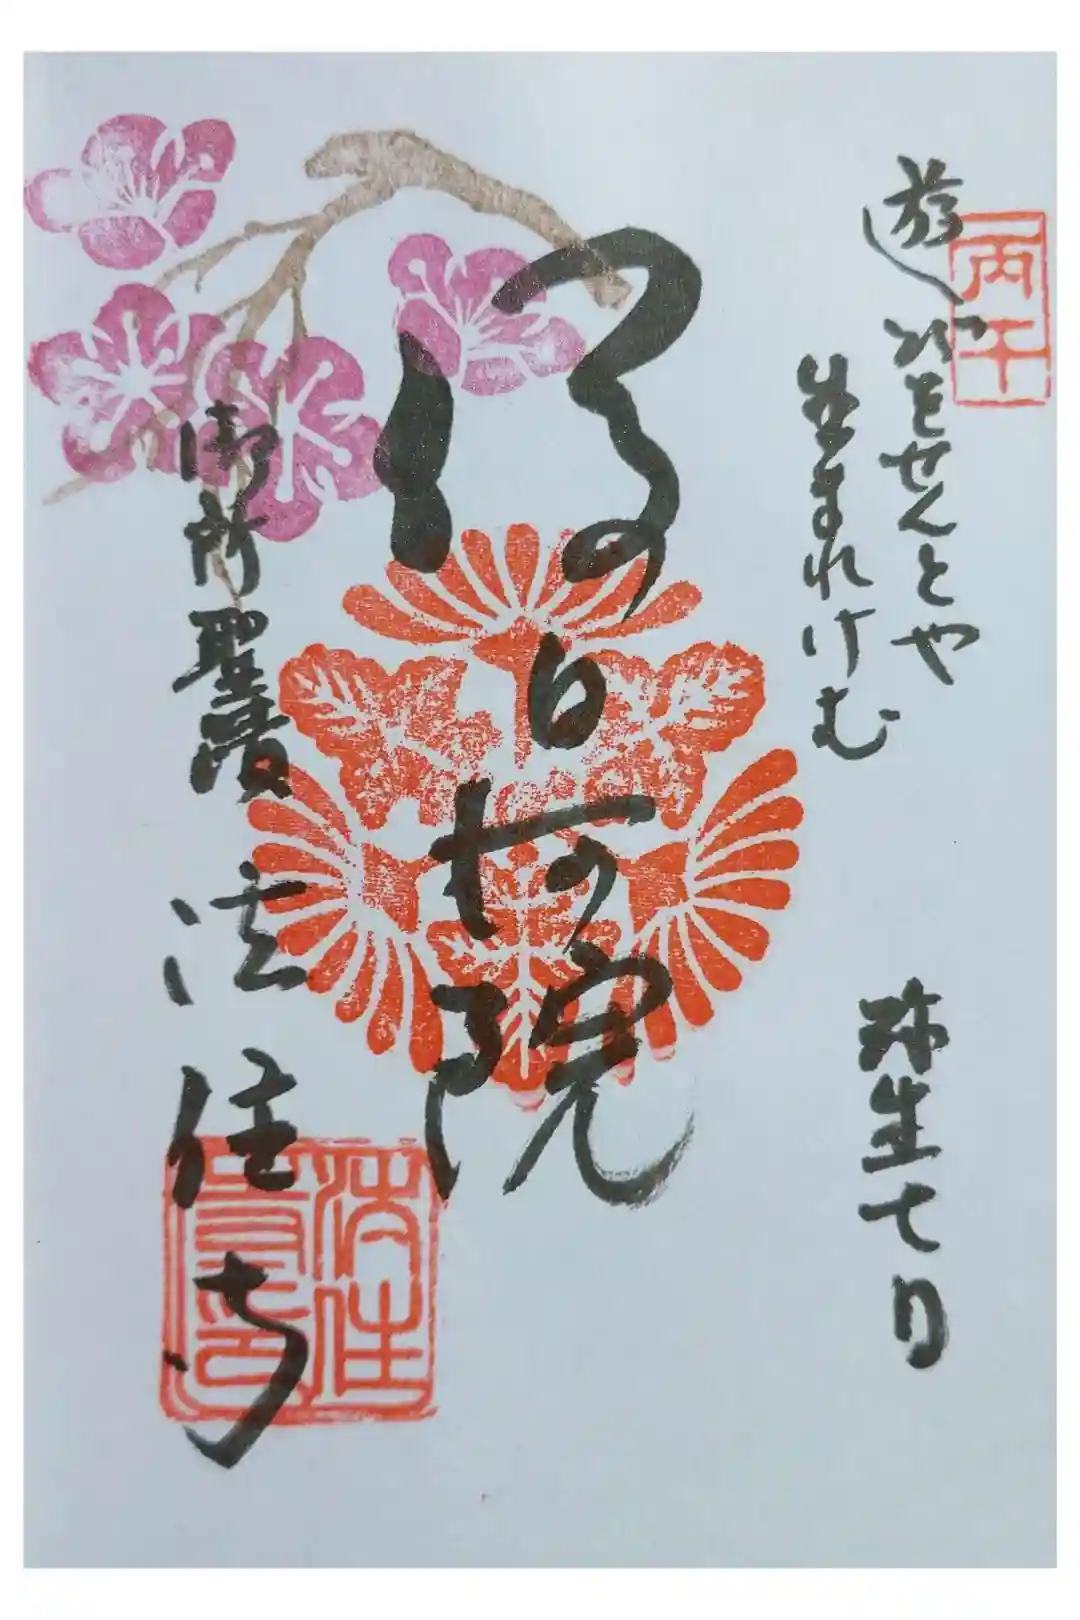 丙午
遊びをせんとや
生まれけむ
弥生七日
後白河院
御所聖蹟 法住寺
法住寺印